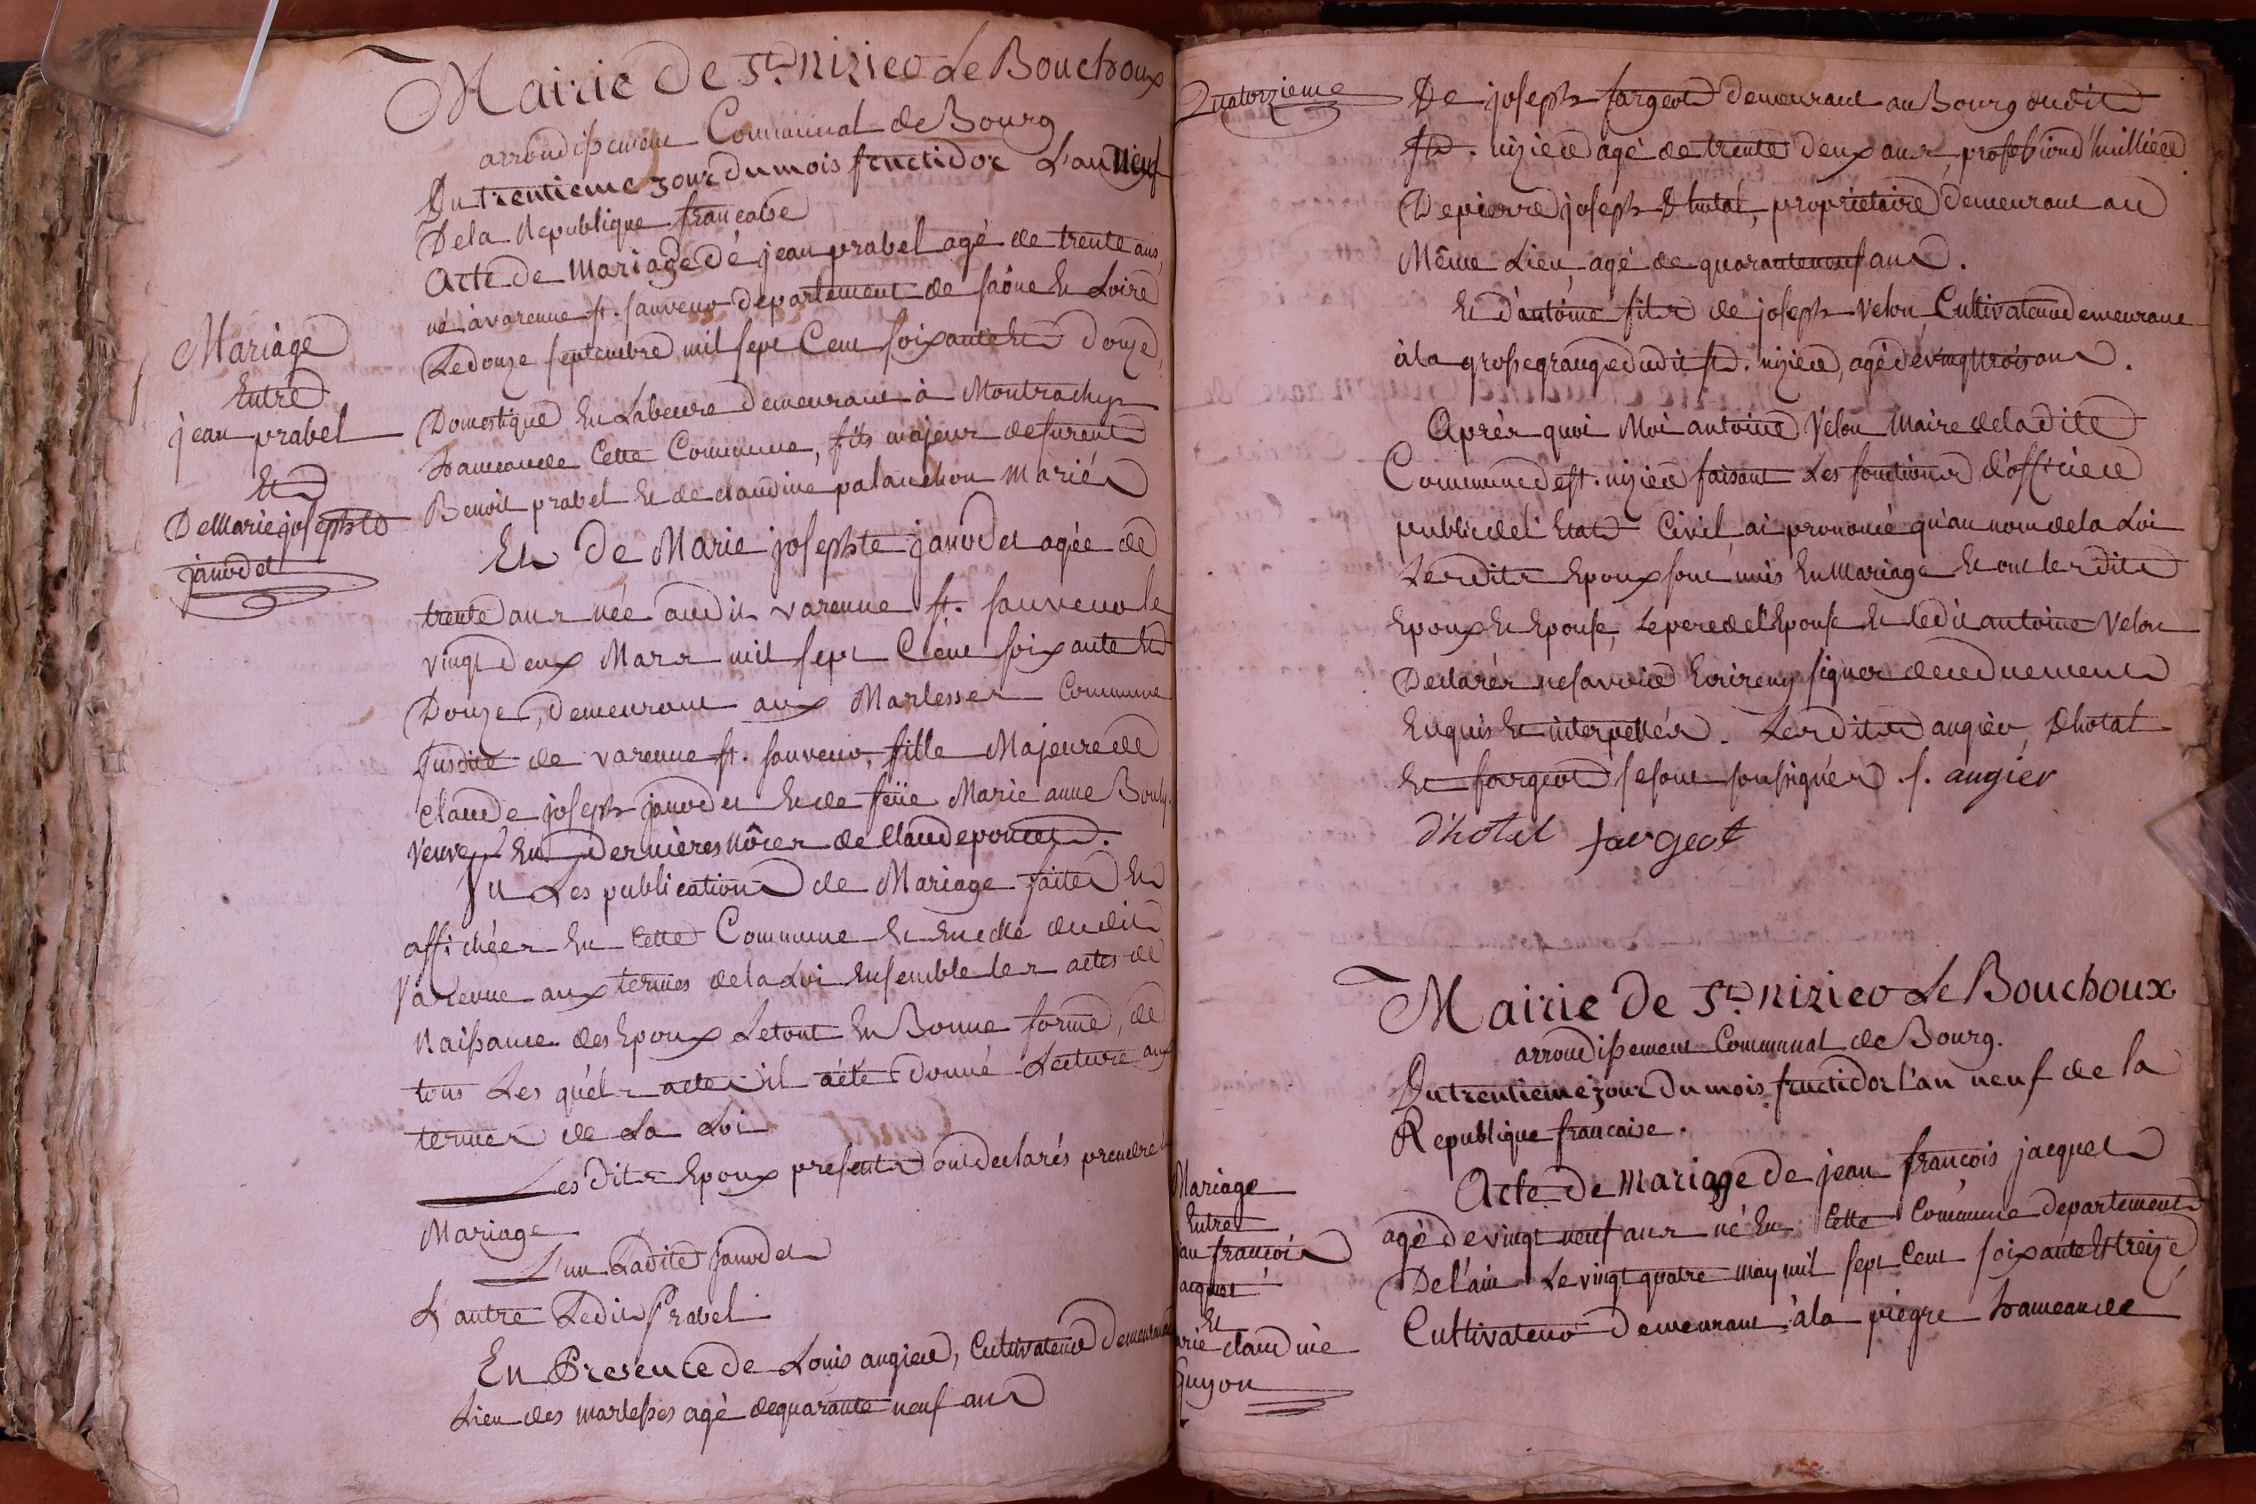 Mairie de St. Nizier Le Bouchoux
arrondissement Communal de Bourg
Du trentieme jour du mois fructidor L'an neuf
De la Republique française
Acte de Mariage dé jean prabel agé de trente ans,
né à varenne st. sauveur departement de saône Et Loire
Le douze septembre mil sept Cent soixante Et Douze,
Domestique En Labeure demeurant à Montrachy
hameau de Cette Commune, fils majeur de furent
Benoit prabel Et de claudine palanchon Mariés
Mariage
Entre
jean prabel
Et
De Marie josephte
janodet
Et De Marie josephte janodet agée de
trente ans née audit varenne st. sauveur le
vingt deux Mars mil sept Cent soixante Et
Douze, demeurant aux Marlesses Commune
susdite de varenne st. sauveur, fille Majeure de
claude joseph janodet Et de feüe Marie anne Bouly
veuve En Dernières nôces de Claude poncet.
Vu Les publications de Mariage faites Et
affichées En Cette Commune Et En celle dudit
Varenne aux termes de la Loi Ensemble les actes de
Naissance des Epoux Le tout En Bonne forme, de
tous Les quels actes il a été donné Lecture aux
termes de La Loi
Les Dits Epoux presents ont declarés prendre En
Mariage
L'un Ladite Janodet
L'autre Ledit Prabel
En Presence de Louis angier, Cultivateur demeurant
Lieu des marlesses agé de quarante neuf ans
Quatorzieme
De joseph fargeot demeurant au Bourg dudit
St. nizier agé de trente deux ans, profession d'huillier
De pierre joseph Dhutal, proprietaire demeurant au
Même Lieu, agé de quarante neuf ans.
Et d'antoine fils de joseph Velon Cultivateur demeurant
à la grosse grange dudit St. nizier, agé de vingt trois ans.
Après quoi Moi antoine Velon Maire de la dite
Commune de st. nizier faisant Les fonctions d'officier
public de l'Etat Civil, ai prononcé qu'au nom de la Loi
Lesdits Epoux sont unis En Mariage Et ont lesdits
Epoux Et Epouse, Le pere de l'Epouse Et ledit antoine Velon
Declarés ne savoir Ecrire ny signer de ce duement
Enquis Et interpellés. Lesdits angier, Dhotal
Et fargeot se sont soussignés. s. angier
d'hotal fargeot
Mairie de St. Nizier Le Bouchoux
arrondissement Communal de Bourg.
Du trentieme jour du mois fructidor l'an neuf de la
Republique francaise.
Mariage
Entre
jean françois
jacquet
Et
marie claudine
Guyon
Acte de mariage de jean françois jacquet
agé de vingt neuf ans né En Cette Commune departement
De l'ain Le vingt quatre may mil sept Cent soixante Et treize,
Cultivateur Demeurant à la piegre hameau de